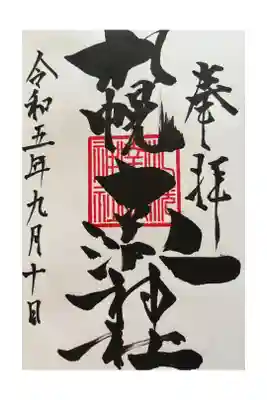 奉拝
札幌
神社
令和五年九月十日